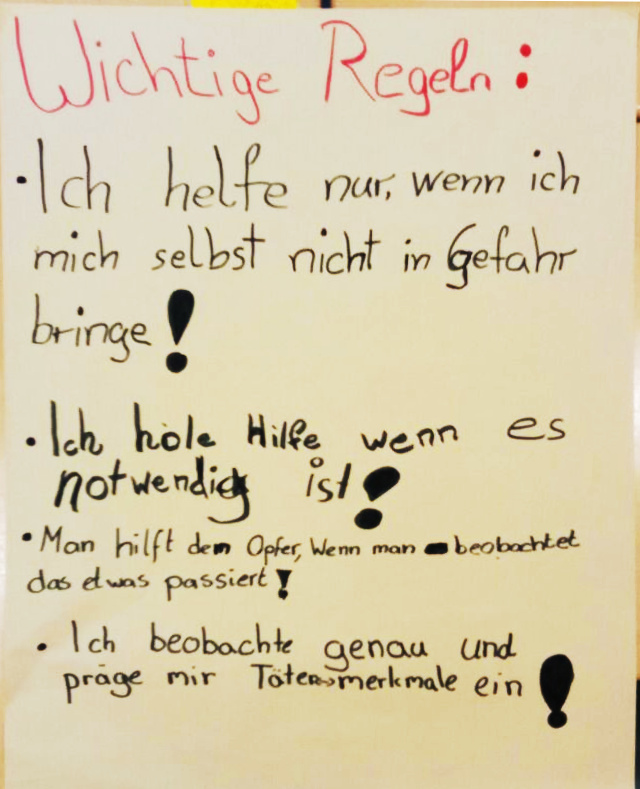 Wichtige Regeln:
· Ich helfe nur, wenn ich
mich selbst nicht in Gefahr
bringe!
· Ich hole Hilfe wenn es
notwendig ist!
· Man hilft dem Opfer, Wenn man beobachtet
das etwas passiert!
· Ich beobachte genau und
präge mir Täter merkmale ein!